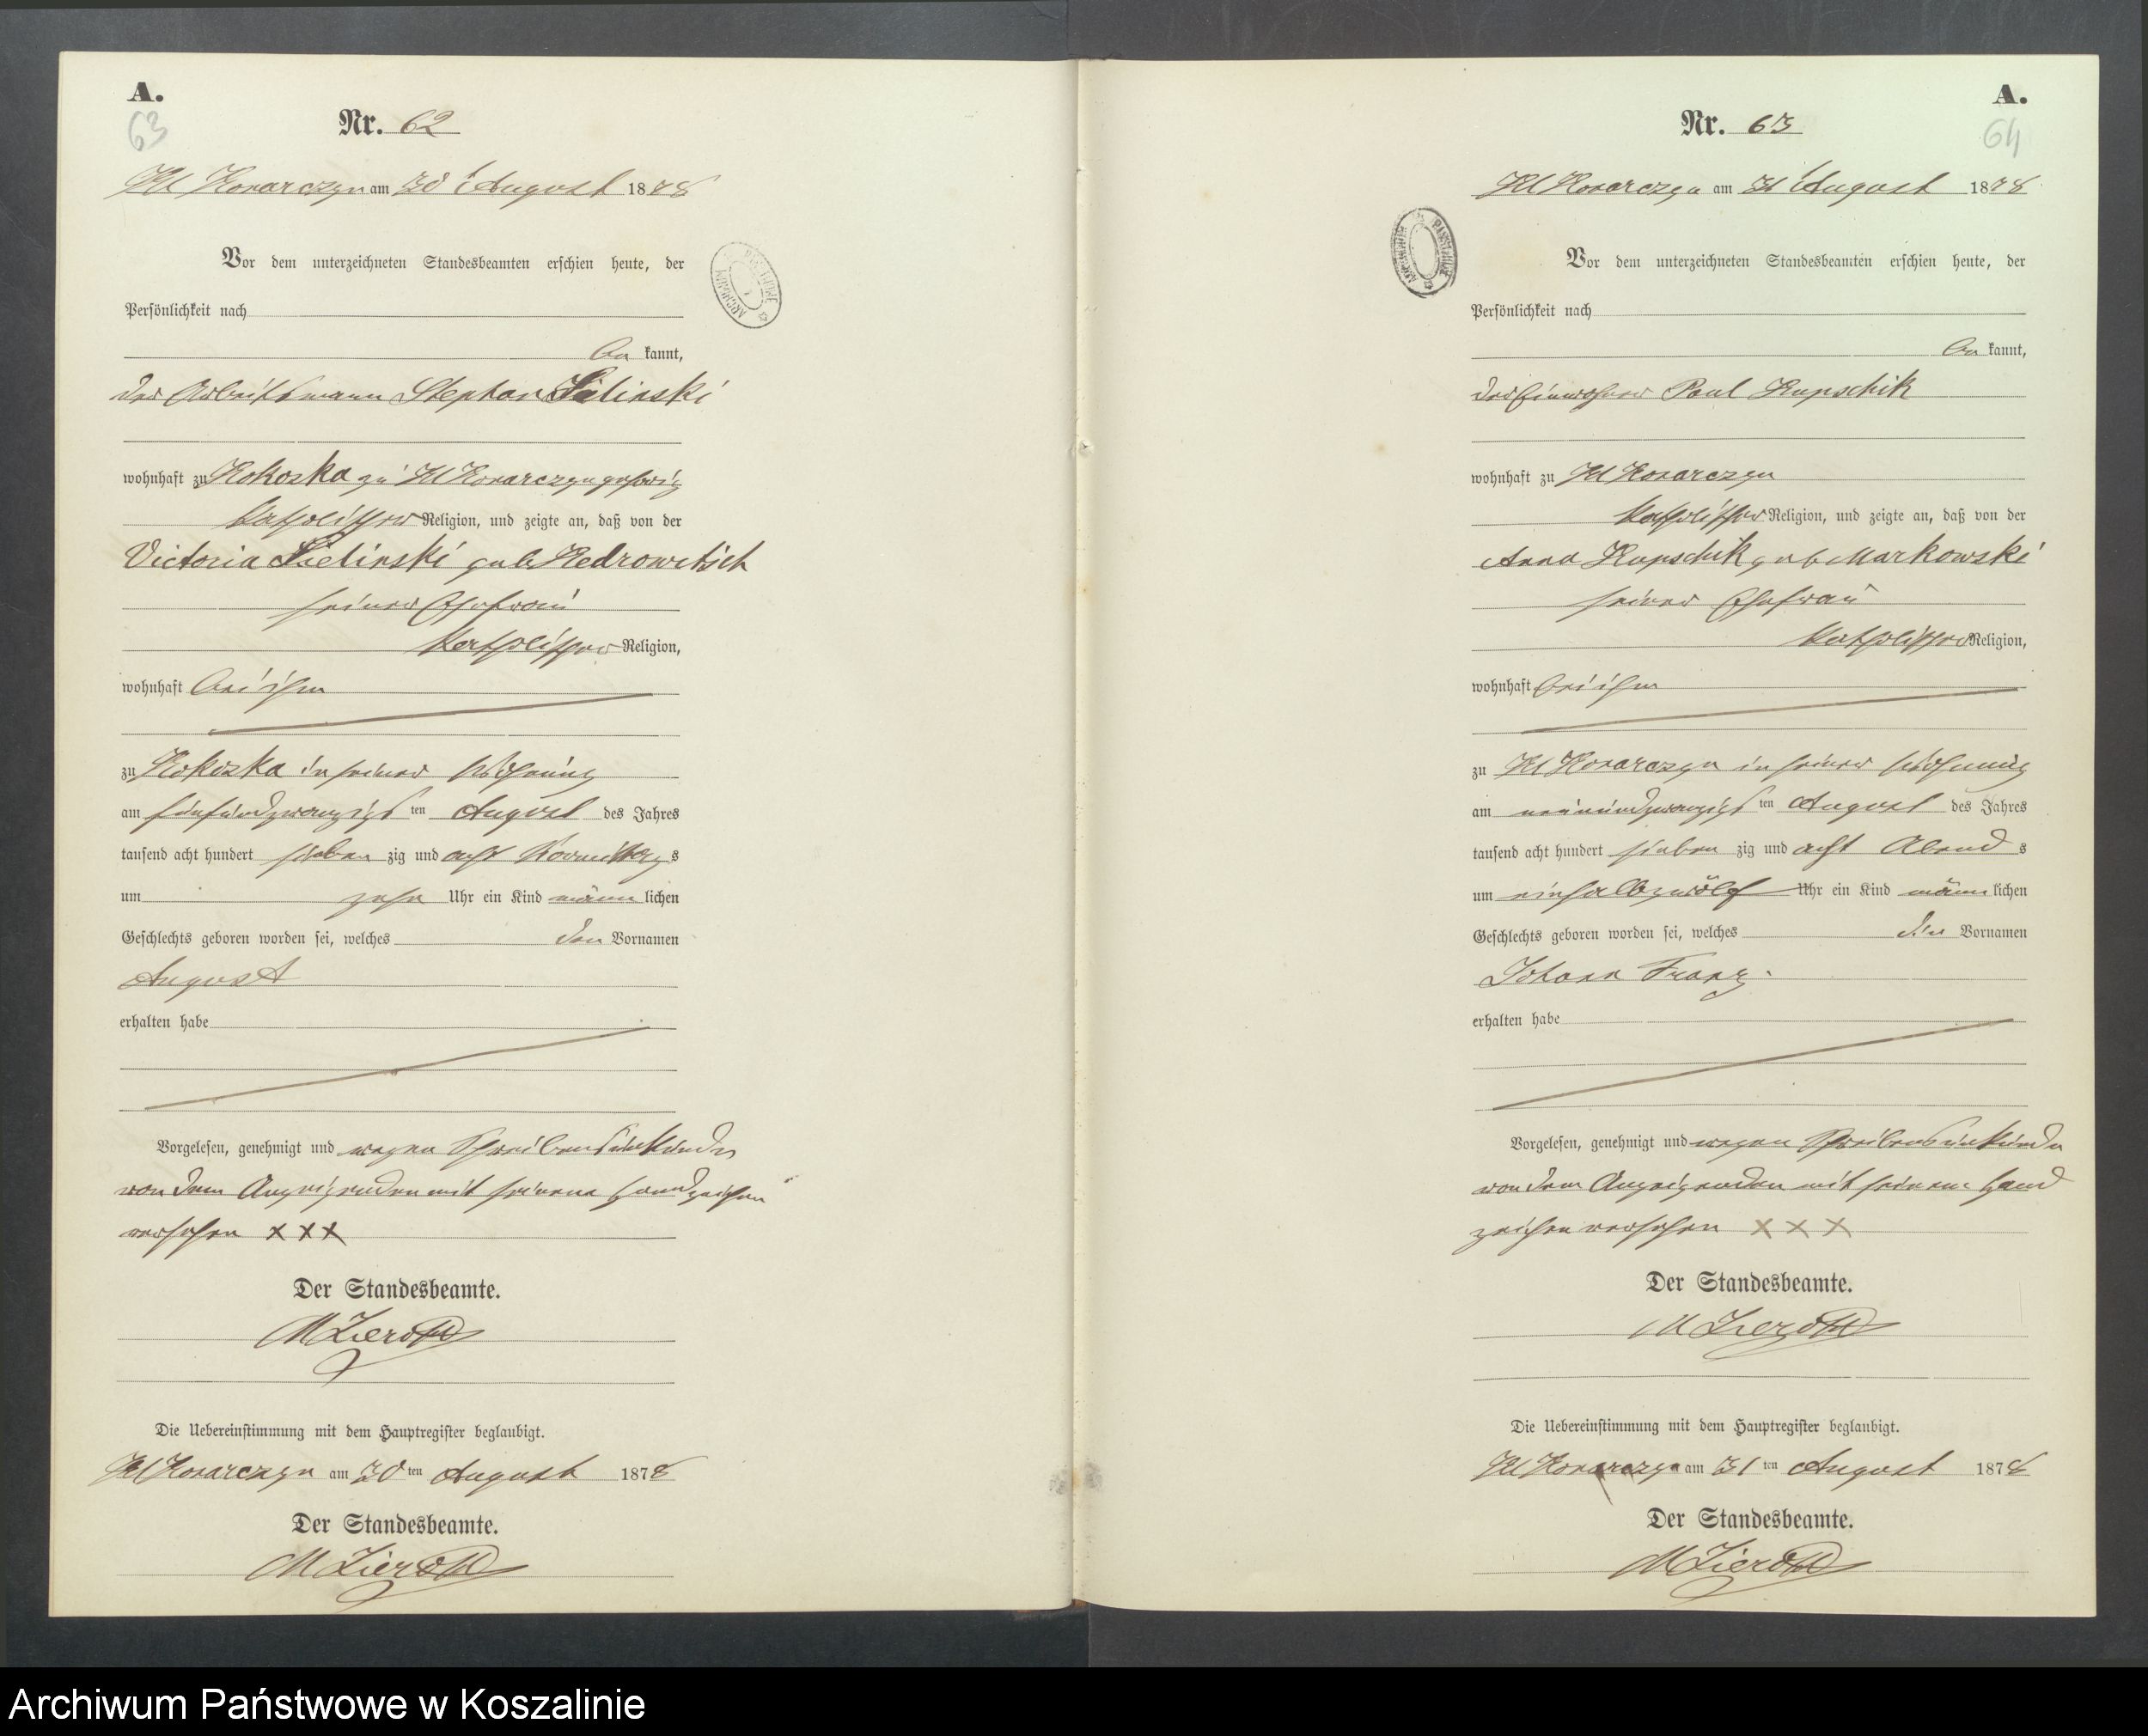 A.
63
Nr. 62
Kl Konarczyn am 30 August 1878
Vor dem unterzeichneten Standesbeamten erschien heute, der
Persönlichkeit nach
be kannt,
der Arbeitsmann Stephan Sielinski
wohnhaft zu Kokoska zu Kl Konarczyn gehörig
katholischer Religion, und zeigte an, daß von der
Victoria Sielinski geb
seiner Ehefrau
katholischer Religion,
wohnhaft bei ihm
zu Kokoska in seiner Wohnung
am fünfundzwanzigsten August des Jahres
tausend acht hundert sieben zig und acht Vormittags
um zehn Uhr ein Kind männ lichen
Geschlechts geboren worden sei, welches den Vornamen
August
erhalten habe
Vorgelesen, genehmigt und wegen Schreibensunkunde
von dem Anzeigenden mit seinem Handzeichen
versehen XXX
Der Standesbeamte.
M Zieroth
Die Uebereinstimmung mit dem Hauptregister beglaubigt.
Kl Konarczyn am 30ten August 1878
Der Standesbeamte.
M Zieroth
A.
64
Nr. 63
Kl Konarczyn am 31 August 1878
Vor dem unterzeichneten Standesbeamten erschien heute, der
Persönlichkeit nach
be kannt,
der Einwohner Paul Kupschik
wohnhaft zu Kl Konarczyn
katholischer Religion, und zeigte an, daß von der
Anna Kupschik geb Markowski
seiner Ehefrau
katholischer Religion,
wohnhaft bei ihm
zu Kl Konarczyn in seiner Wohnung
am neunundzwanzigsten August des Jahres
tausend acht hundert sieben zig und acht Abends
um einhalbzwölf Uhr ein Kind männ lichen
Geschlechts geboren worden sei, welches die Vornamen
Johann Franz.
erhalten habe
Vorgelesen, genehmigt und wegen Schreibensunkunde
von dem Anzeigenden mit seinem Hand
zeichen versehen X X X
Der Standesbeamte.
M Zieroth
Die Uebereinstimmung mit dem Hauptregister beglaubigt.
Kl Konarczyn am 31ten August 1878
Der Standesbeamte.
M Zieroth
Archiwum Państwowe w Koszalinie